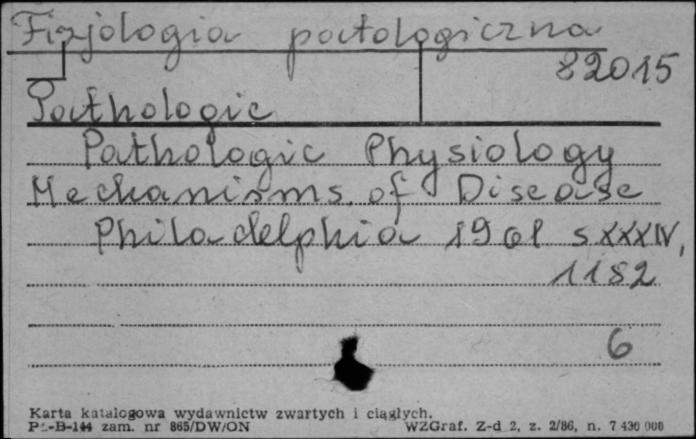 Fizjologia patologiczna
82015
Pathologic
Pathologic Physiology
Mechanisms of Disease
Philadelphia 1961 s XXXIV,
1182
6
Karta katalogowa wydawnictw zwartych i ciągłych.
Pu-B-144 zam. nr 865/DW/ON WZGraf. Z-d 2, z. 2/86, n. 7 430 000